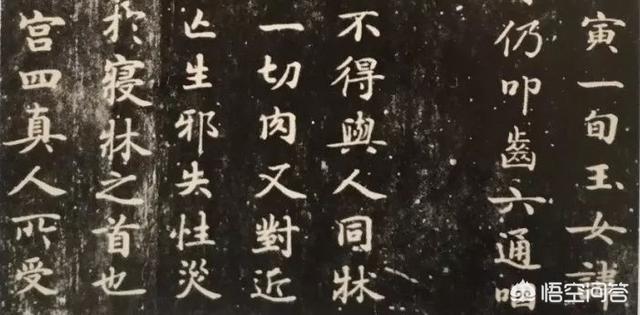 寅一旬玉女諱
仍叩齒六通咽
不得與人同牀
一切肉又對近
亡生邪失性災
於寢牀之首也
宮四真人所受
悟空问答